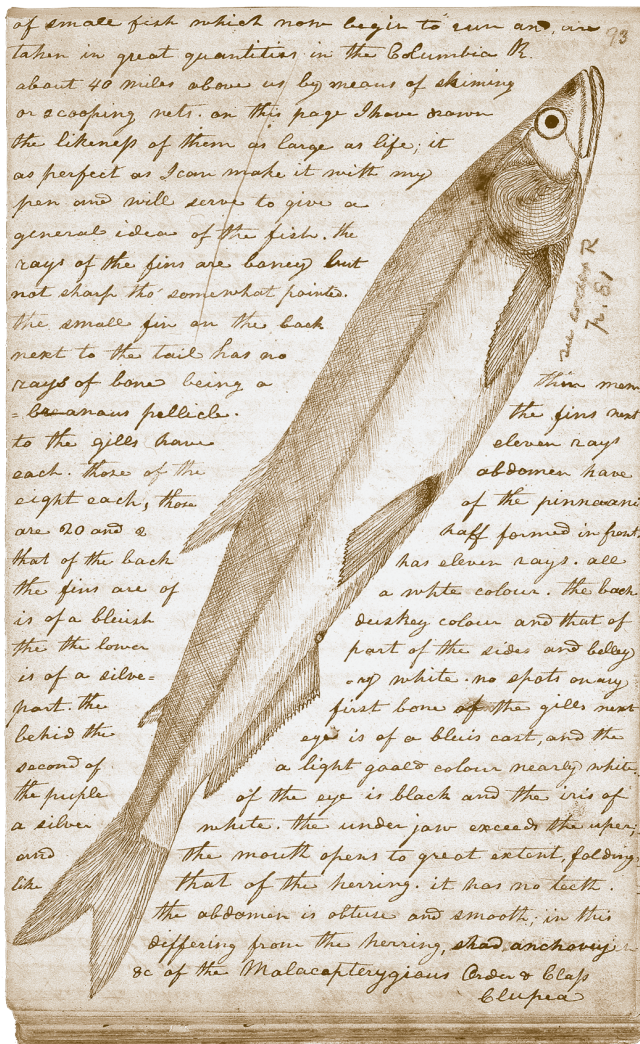 93
of small fish which now begin to run and, are
taken in great quantities in the Columbia R.
about 40 miles above us by means of skiming
or scooping nets. on this page I have drawn
the likeness of them as large as life; it
as perfect as I can make it with my
pen and will serve to give a
general idea of the fish. the
rays of the fins are boney but
not sharp tho' somewhat pointed.
the small fin on the back
next to the tail has no
rays of bone being a thin mem
=branous pellicle. the fins next
to the gills have eleven rays
each. those of the abdomen have
eight each, those of the pinnaani
are 20 and 2 half formed in front.
that of the back has eleven rays. all
the fins are of a white colour. the back
is of a bleuish duskey colour and that of
the the lower part of the sides and belley
is of a silve= =ry white. no spots on any
part. the first bone of the gills next
behid the eye is of a bleuis cast, and the
second of a light goald colour nearly white
the puple of the eye is black and the iris of
a silver white. the under jaw exceeds the uper;
and the mouth opens to great extent, folding
like that of the herring. it has no teeth.
the abdomen is obtuse and smooth; in this
differing from the herring, shad, anchovy
&c of the Malacopterygious Order & Class
Clupea
see codex R
p. 81